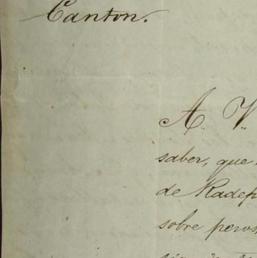 Canton.
A. V.
saber, que
de Radep
sobre peros